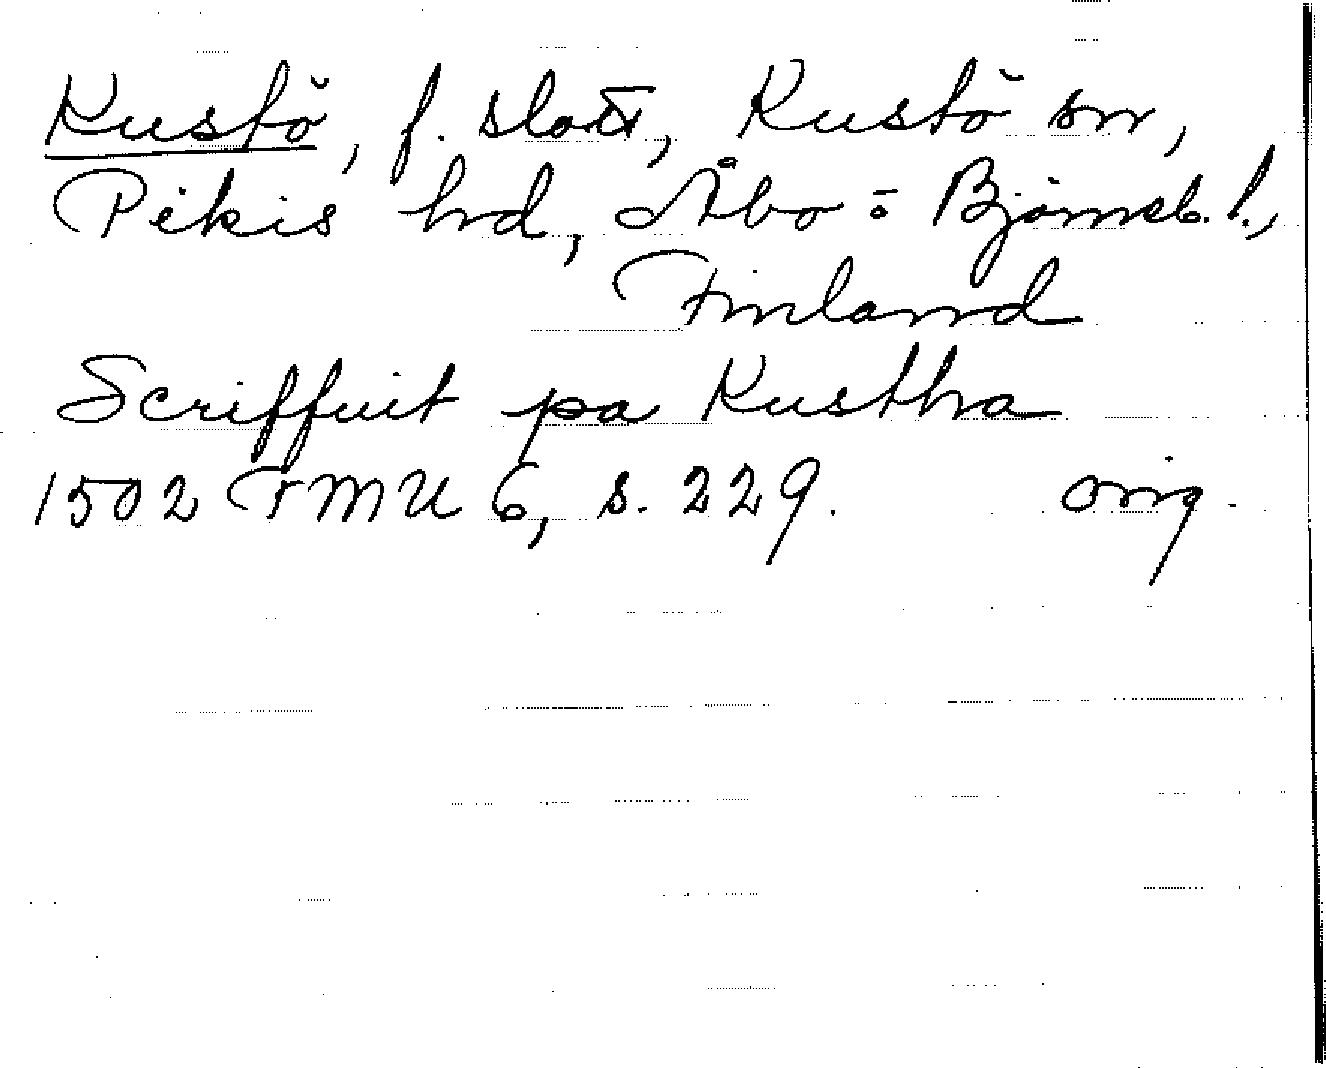 Kustö, f. slott, Kustö sn,
Pikis hd, Åbo o Björneb. l.,
Finland
Scriffuit pa Kustha
1502 FMU 6, s. 229. orig.